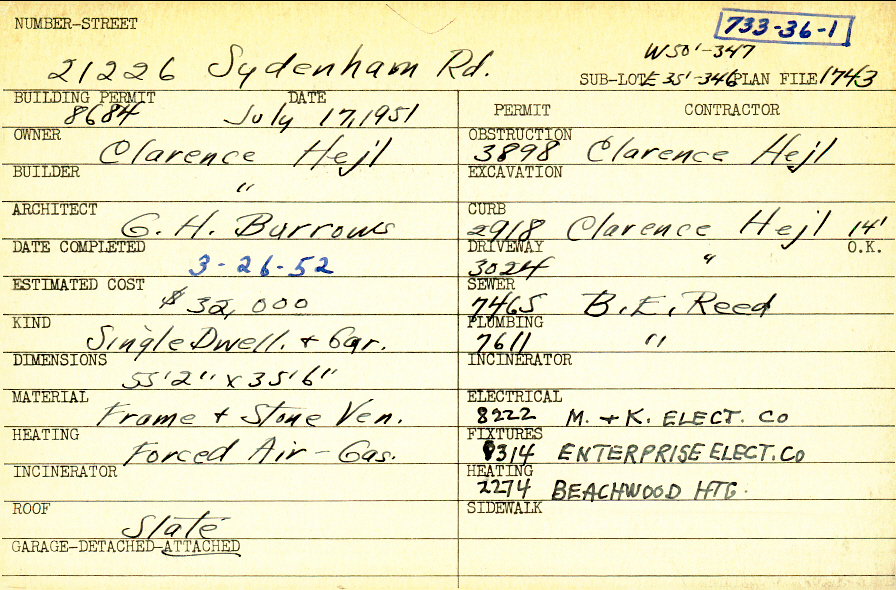 NUMBER-STREET
733-36-1
21226 Sydenham Rd.
W50'-347
SUB-LOT E 35'-346 PLAN FILE 1743
BUILDING PERMIT DATE
8684 July 17, 1951
OWNER
Clarence Hejl
BUILDER
"
ARCHITECT
G. H. Burrows
DATE COMPLETED
3-26-52
ESTIMATED COST
$ 32,000
KIND
Single Dwell. + Gar.
DIMENSIONS
55'2" x 35'6"
MATERIAL
Frame + Stone Ven.
HEATING
Forced Air - Gas.
INCINERATOR
ROOF
Slate
GARAGE-DETACHED-ATTACHED
PERMIT CONTRACTOR
OBSTRUCTION
3898 Clarence Hejl
EXCAVATION
CURB
2918 Clarence Hejl 14'
DRIVEWAY O.K.
3024 "
SEWER
7465 B. E. Reed
PLUMBING
7611 "
INCINERATOR
ELECTRICAL
8222 M. + K. ELECT. CO
FIXTURES
9314 ENTERPRISE ELECT. CO
HEATING
2274 BEACHWOOD HTG.
SIDEWALK